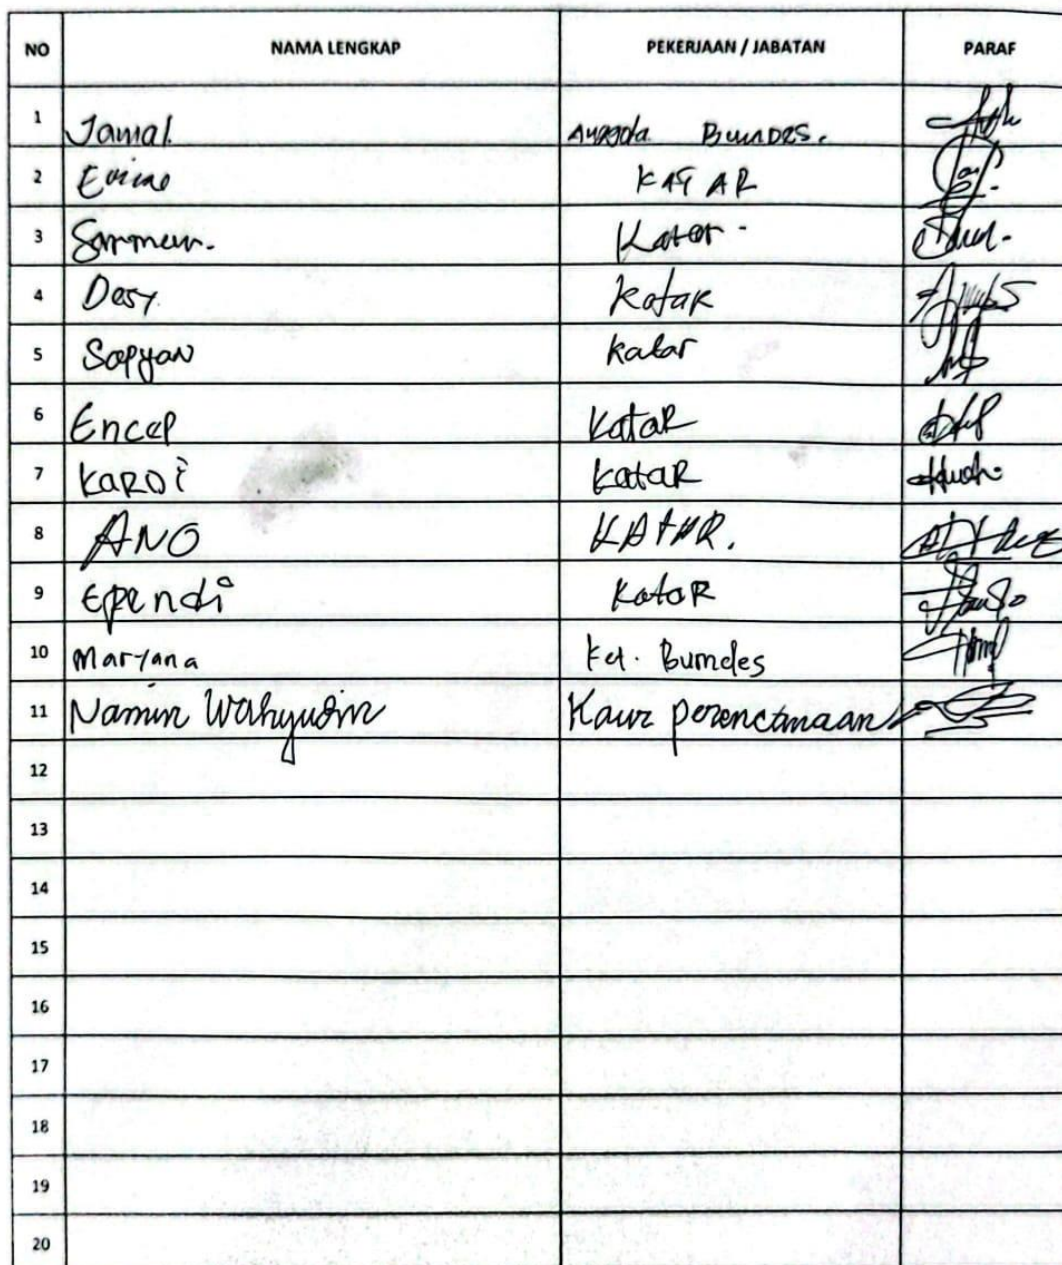 NO NAMA LENGKAP PEKERJAAN / JABATAN PARAF
1 Jamal. Anggota Bumdes.
2 KATAR
3 Katar -
4 Desy. katar
5 Sopyan katar
6 Encep katar
7 KARDi katar
8 ANO KATAR.
9 Ependi katar
10 Maryana ket. Bumdes
11 Namin Wahyudin Kaur perencanaan
12
13
14
15
16
17
18
19
20